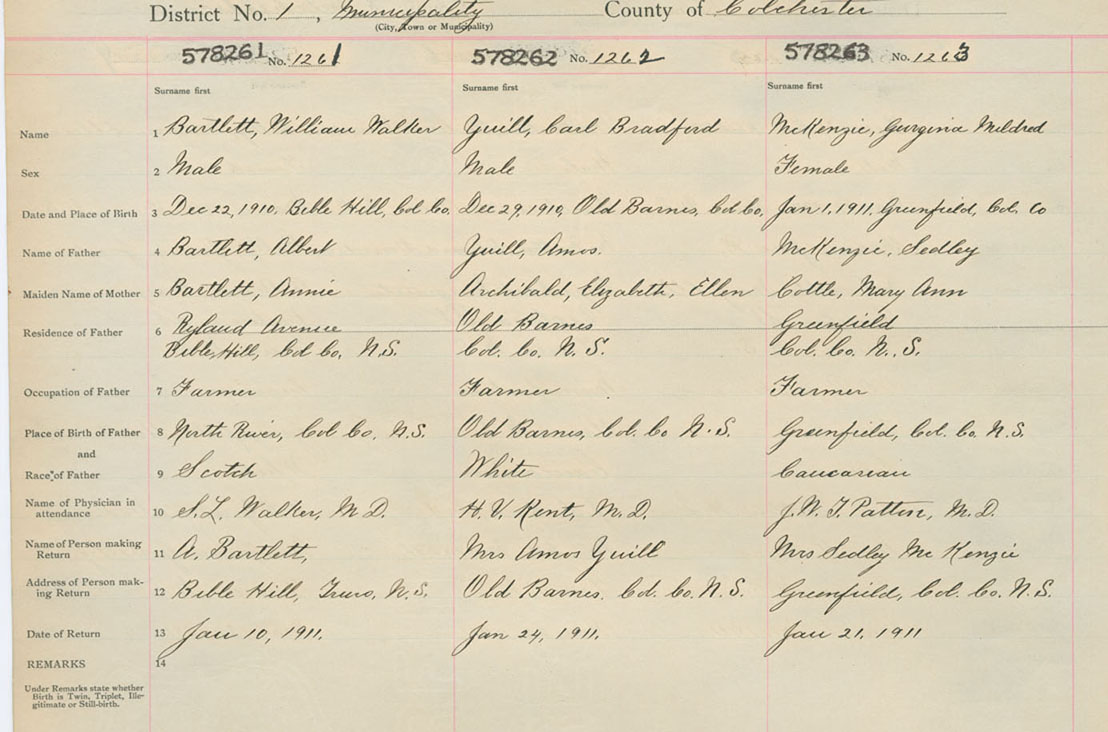 District No. 1, Municipality County of Colchester
(City, Town or Municipality)
578261 No. 1261 578262 No. 1262 578263 No. 1263
Surname first Surname first Surname first
Name 1 Bartlett, William Walker Yuill, Carl Bradford McKenzie, Gurgina Mildred
Sex 2 Male Male Female
Date and Place of Birth 3 Dec 22, 1910, Bible Hill, Col Co, Dec 29, 1910, Old Barnes, Col Co, Jan 1, 1911, Greenfield, Col. Co
Name of Father 4 Bartlett, Albert Yuill, Amos. McKenzie, Sedley
Maiden Name of Mother 5 Bartlett, Annie Archibald, Elizabeth, Ellen Cottle, Mary Ann
Residence of Father 6 Ryland Avenue Old Barnes Greenfield
Bible Hill, Col Co, N.S. Col. Co. N.S. Col. Co. N.S.
Occupation of Father 7 Farmer Farmer Farmer
Place of Birth of Father 8 North River, Col Co, N.S. Old Barnes, Col. Co N.S. Greenfield, Col. Co. N.S.
and
Race of Father 9 Scotch White Caucasian
Name of Physician in
attendance 10 S.L. Walker, M D. H. V. Kent, M.D. J.W. T. Patten, M.D.
Name of Person making
Return 11 A. Bartlett, Mrs Amos Yuill Mrs Sedley Mc Kenzie
Address of Person mak-
ing Return 12 Bible Hill, Truro, N.S. Old Barnes, Col. Co. N.S. Greenfield, Col. Co. N.S.
Date of Return 13 Jan 10, 1911. Jan 24, 1911. Jan 21, 1911
REMARKS 14
Under Remarks state whether
Birth is Twin, Triplet, Ille-
gitimate or Still-birth.